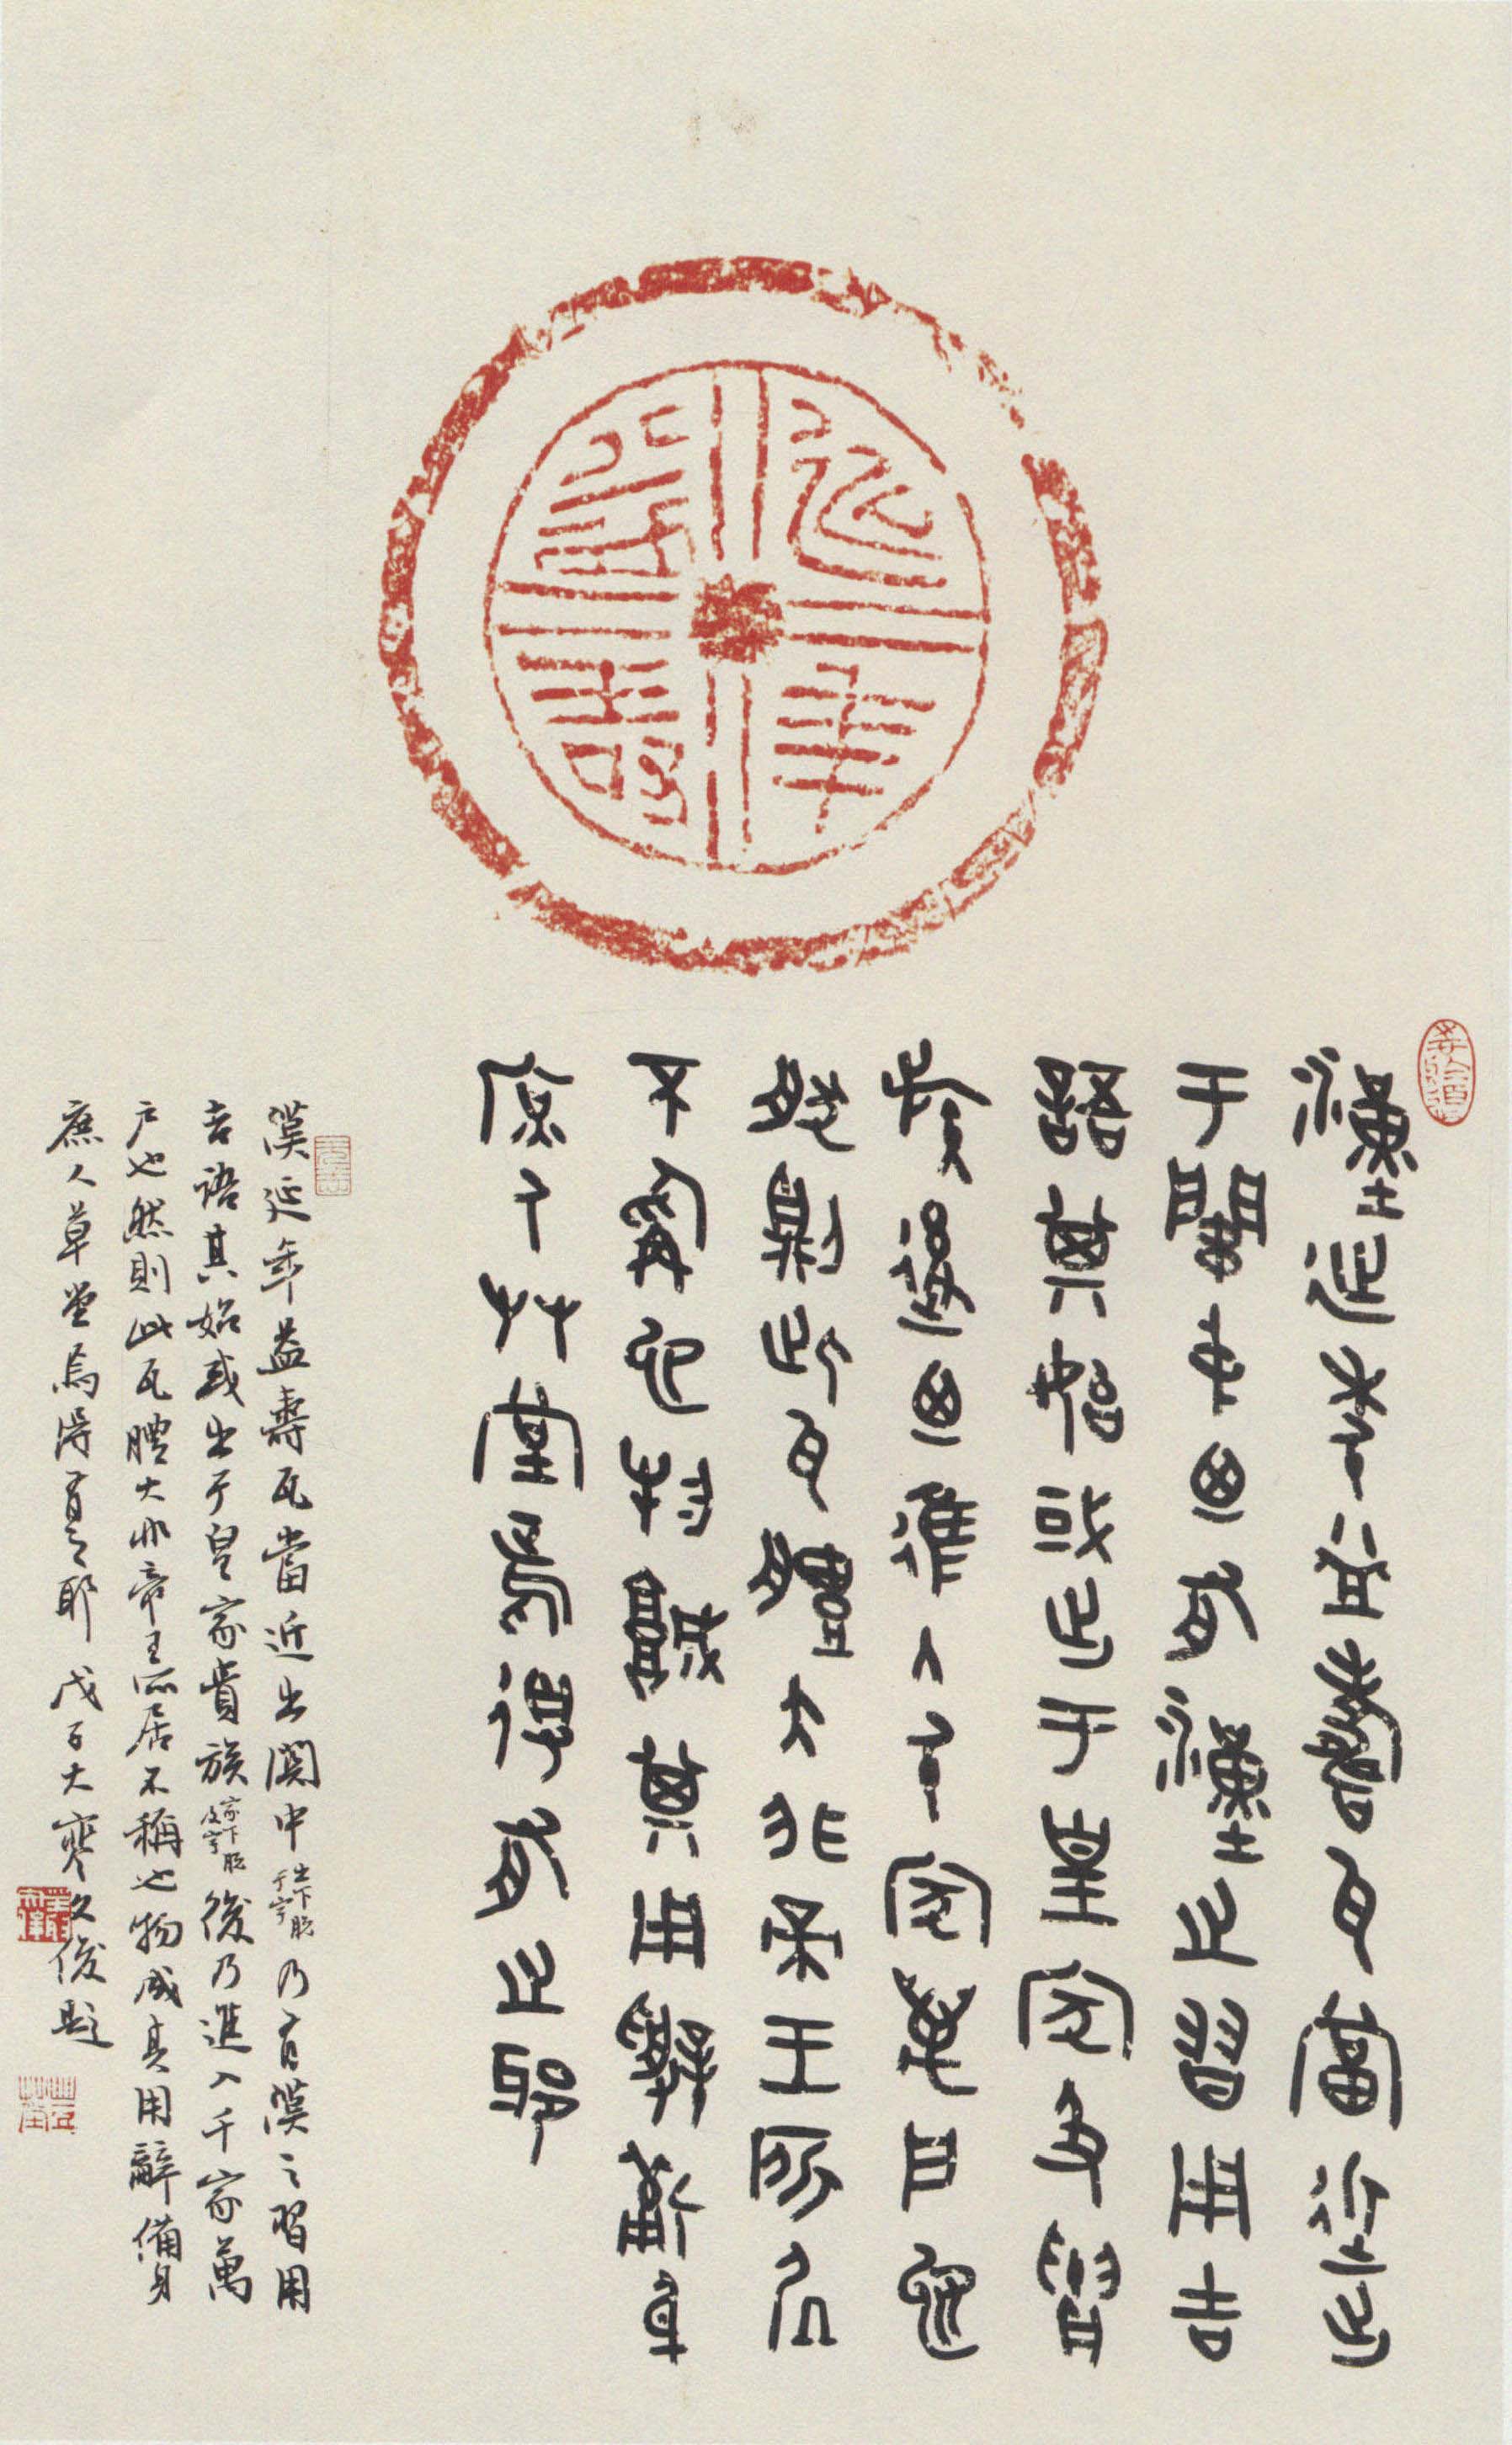 延年
益壽
漢延年益壽瓦當近出
于關中乃有漢之習用吉
語其始或出于皇家及貴
族後乃進入千家萬戶也
然則此瓦體大非帝王所居
不稱也物其用辭備身
庶人草堂焉得有之耶
漢延年益壽瓦當近出關中出下脫于字乃有漢之習用
吉語其始或出于皇家貴族家下脫及字後乃進入千家萬
戶也然則此瓦體大非帝王所居不稱也物其用辭備身
庶人草堂焉得有之耶 戊子大寒文俊題